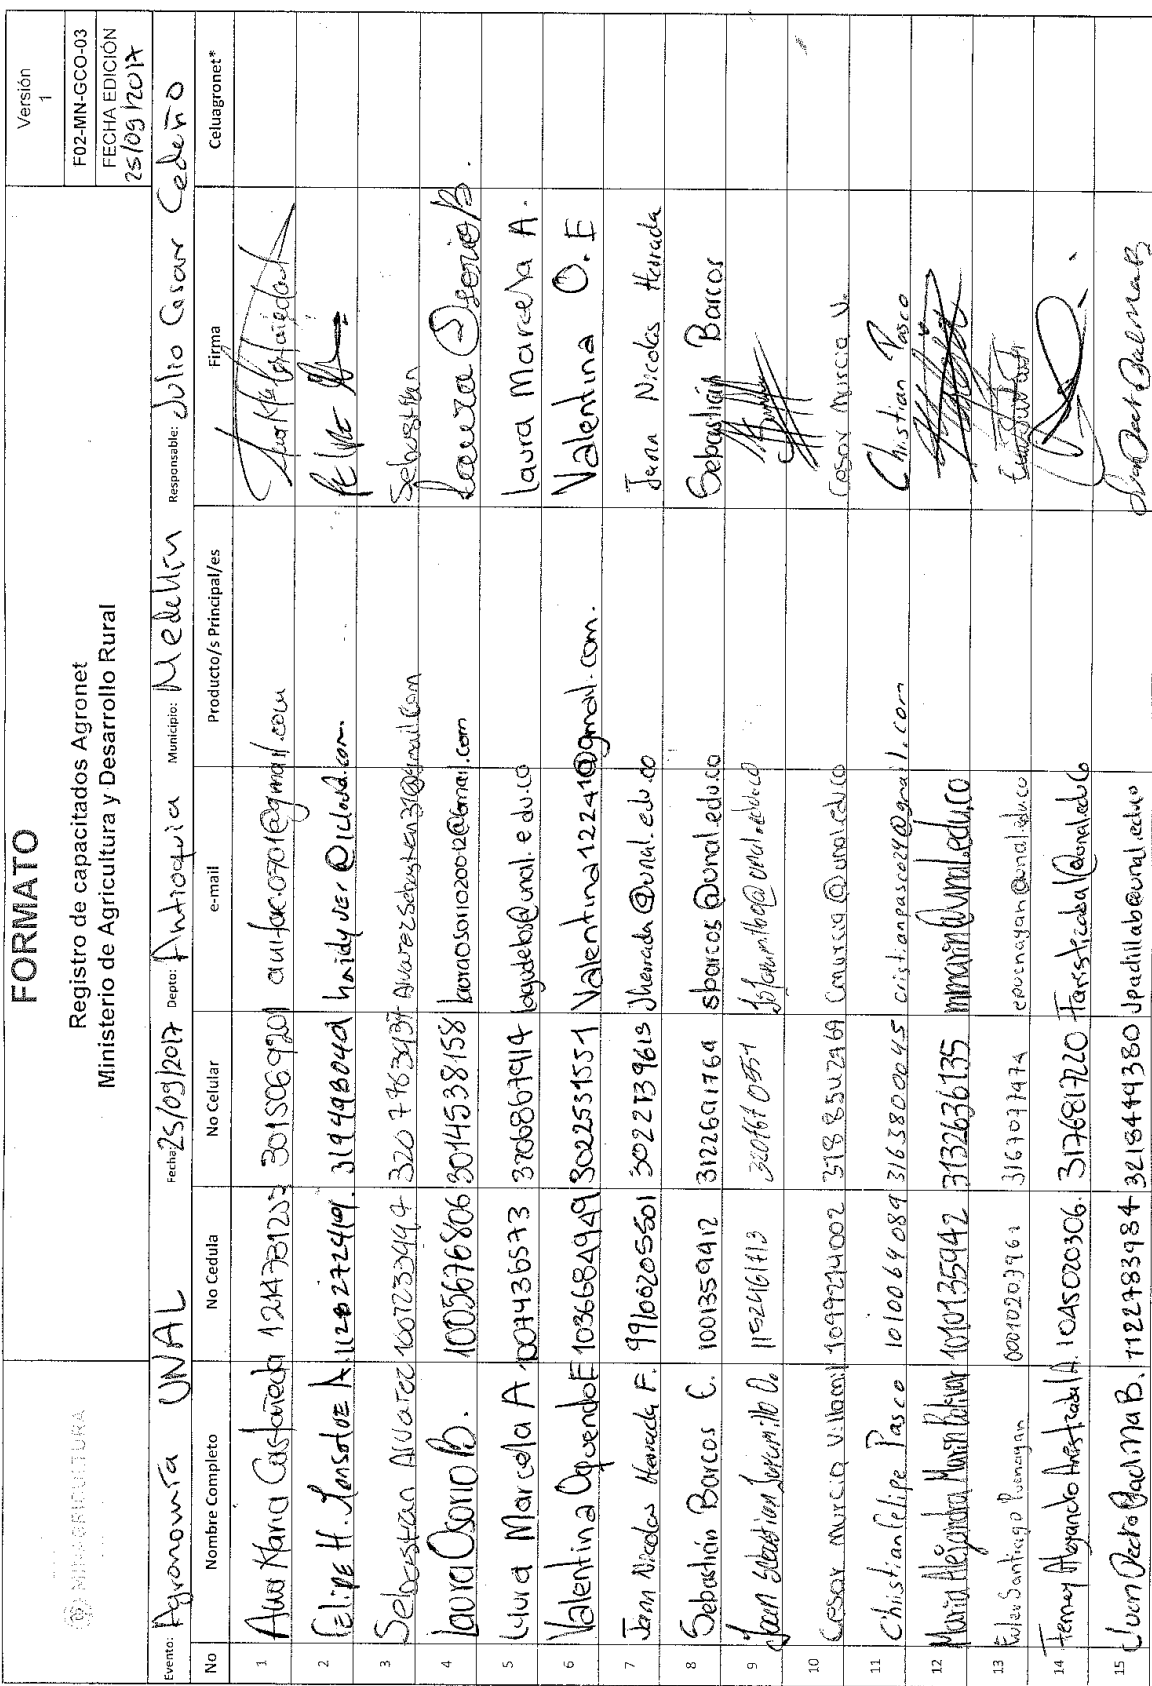 MINAGRICULTURA
FORMATO
Registro de capacitados Agronet
Ministerio de Agricultura y Desarrollo Rural
Versión
1
F02-MN-GCO-03
FECHA EDICIÓN
25/09/2017
Evento: Agronomía UNAL Fecha: 25/09/2017 Depto: Antioquia Municipio: Medellín Responsable: Julio Cesar Cedeño
No Nombre Completo No Cedula No Celular e-mail Producto/s Principal/es Firma Celuagronet*
1 Ana Maria Castañeda 3015069201
2 Felipe H. 319498040
3 Sebastian Alvarez 1007233994 AlvarezSebastian31@gmail.com Sebastian
4 Laura Osorio B. 1005676806 3014538158 lauraosorio20012@Gmail.com Laura Osorio B.
5 Laura Marcela A. 1007436573 lagudelos@unal.edu.co Laura Marcela A.
6 Valentina Oquendo E 1036684949 3022531551 Valentina12241@gmail.com. Valentina O. E
7 Jann Nicolas Herrada F. 99100205501 3022139613 Jherrada@unal.edu.co Jann Nicolas Herrada
8 Sebastián Barcos C. 1001359912 3122691769 sbarcos@unal.edu.co Sebastián Barcos
9 Juan Sebastian Jaramillo O. 1152461713
10 Cesar Murcia Villamil 1099214002 cmurcia@unal.edu.co Cesar Murcia V.
11 Christian Felipe Pasco 1010064089 3163800045 cristianpasco24@gmail.com Christian Pasco
12 Maria Alejandra Marin Bolivar 1010135942 3132636135 mmarin@unal.edu.co
13 Santiago Puenayan 3167077474 epuenayan@unal.edu.co
14 Ferney Alejandro Aristizabal A. 1045020306. 3176817220 Faristizabal@unal.edu.co
15 Juan Pedro Padilla B. 71122783984 3218449380 Jpadillab@unal.edu.co